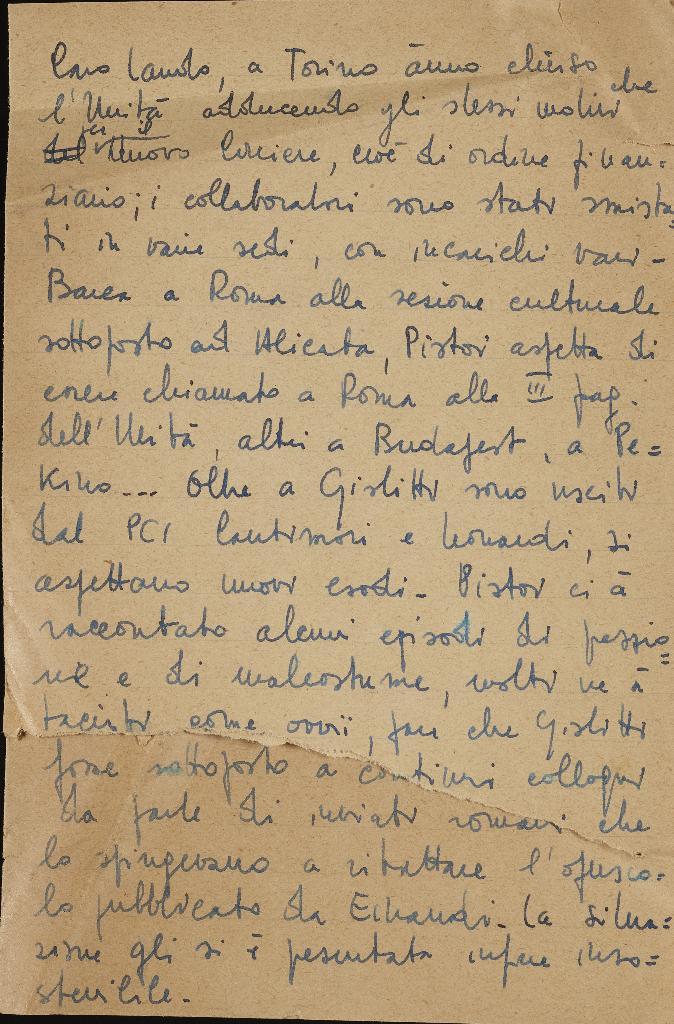 Caro Lando, a Torino ànno chiuso
l'Unità adducendo gli stessi motivi che
del ci il Nuovo Corriere, cioè di ordine finan=
ziario; i collaboratori sono stati smista=
ti in varie sedi, con incarichi vari -
Barca a Roma alla sezione culturale
sottoposto ad Alicata, Pistoi aspetta di
essere chiamato a Roma alla III pag.
dell'Unità, altri a Budapest, a Pe=
kino... Oltre a Giolitti sono usciti
dal PCI Cantimori e Leonardi, si
aspettano nuovi esodi - Pistoi ci à
raccontato alcuni episodi di pressio=
ne e di malcostume, molti ne à
taciuti come ovvii, pare che Giolitti
fosse sottoposto a continui colloqui
da parte di inviati romani che
lo spingevano a ritrattare l'opusco=
lo pubblicato da Einaudi. La situa=
zione gli si è presentata infine inso=
stenibile -